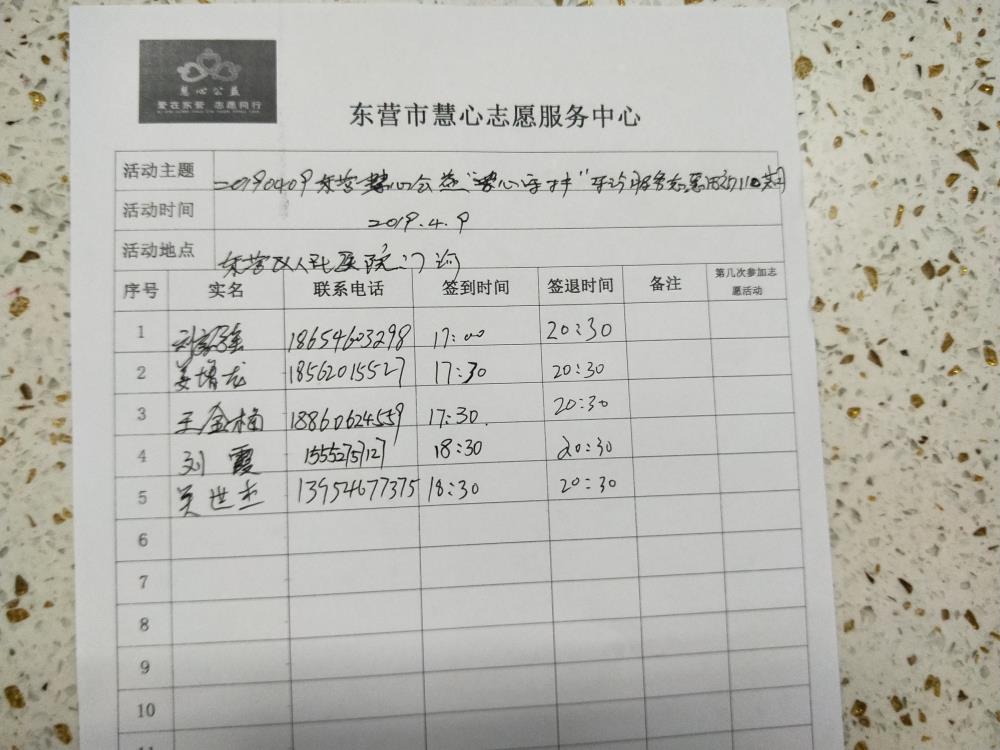 慧心公益
爱在东营 志愿同行
东营市慧心志愿服务中心
活动主题 20190409东营慧心公益"爱心手拌"导诊服务志愿活动110期
活动时间 2019.4.9
活动地点 东营区人民医院门诊
序号 实名 联系电话 签到时间 签退时间 备注 第几次参加志
愿活动
1 18654603298 17:00 20:30
2 姜增龙 18562015527 17:30 20:30
3 王金楠 18860624559 17:30. 20:30
4 刘霞 15552751271 18:30 20:30
5 吴世杰 13954677375 18:30 20:30
6
7
8
9
10